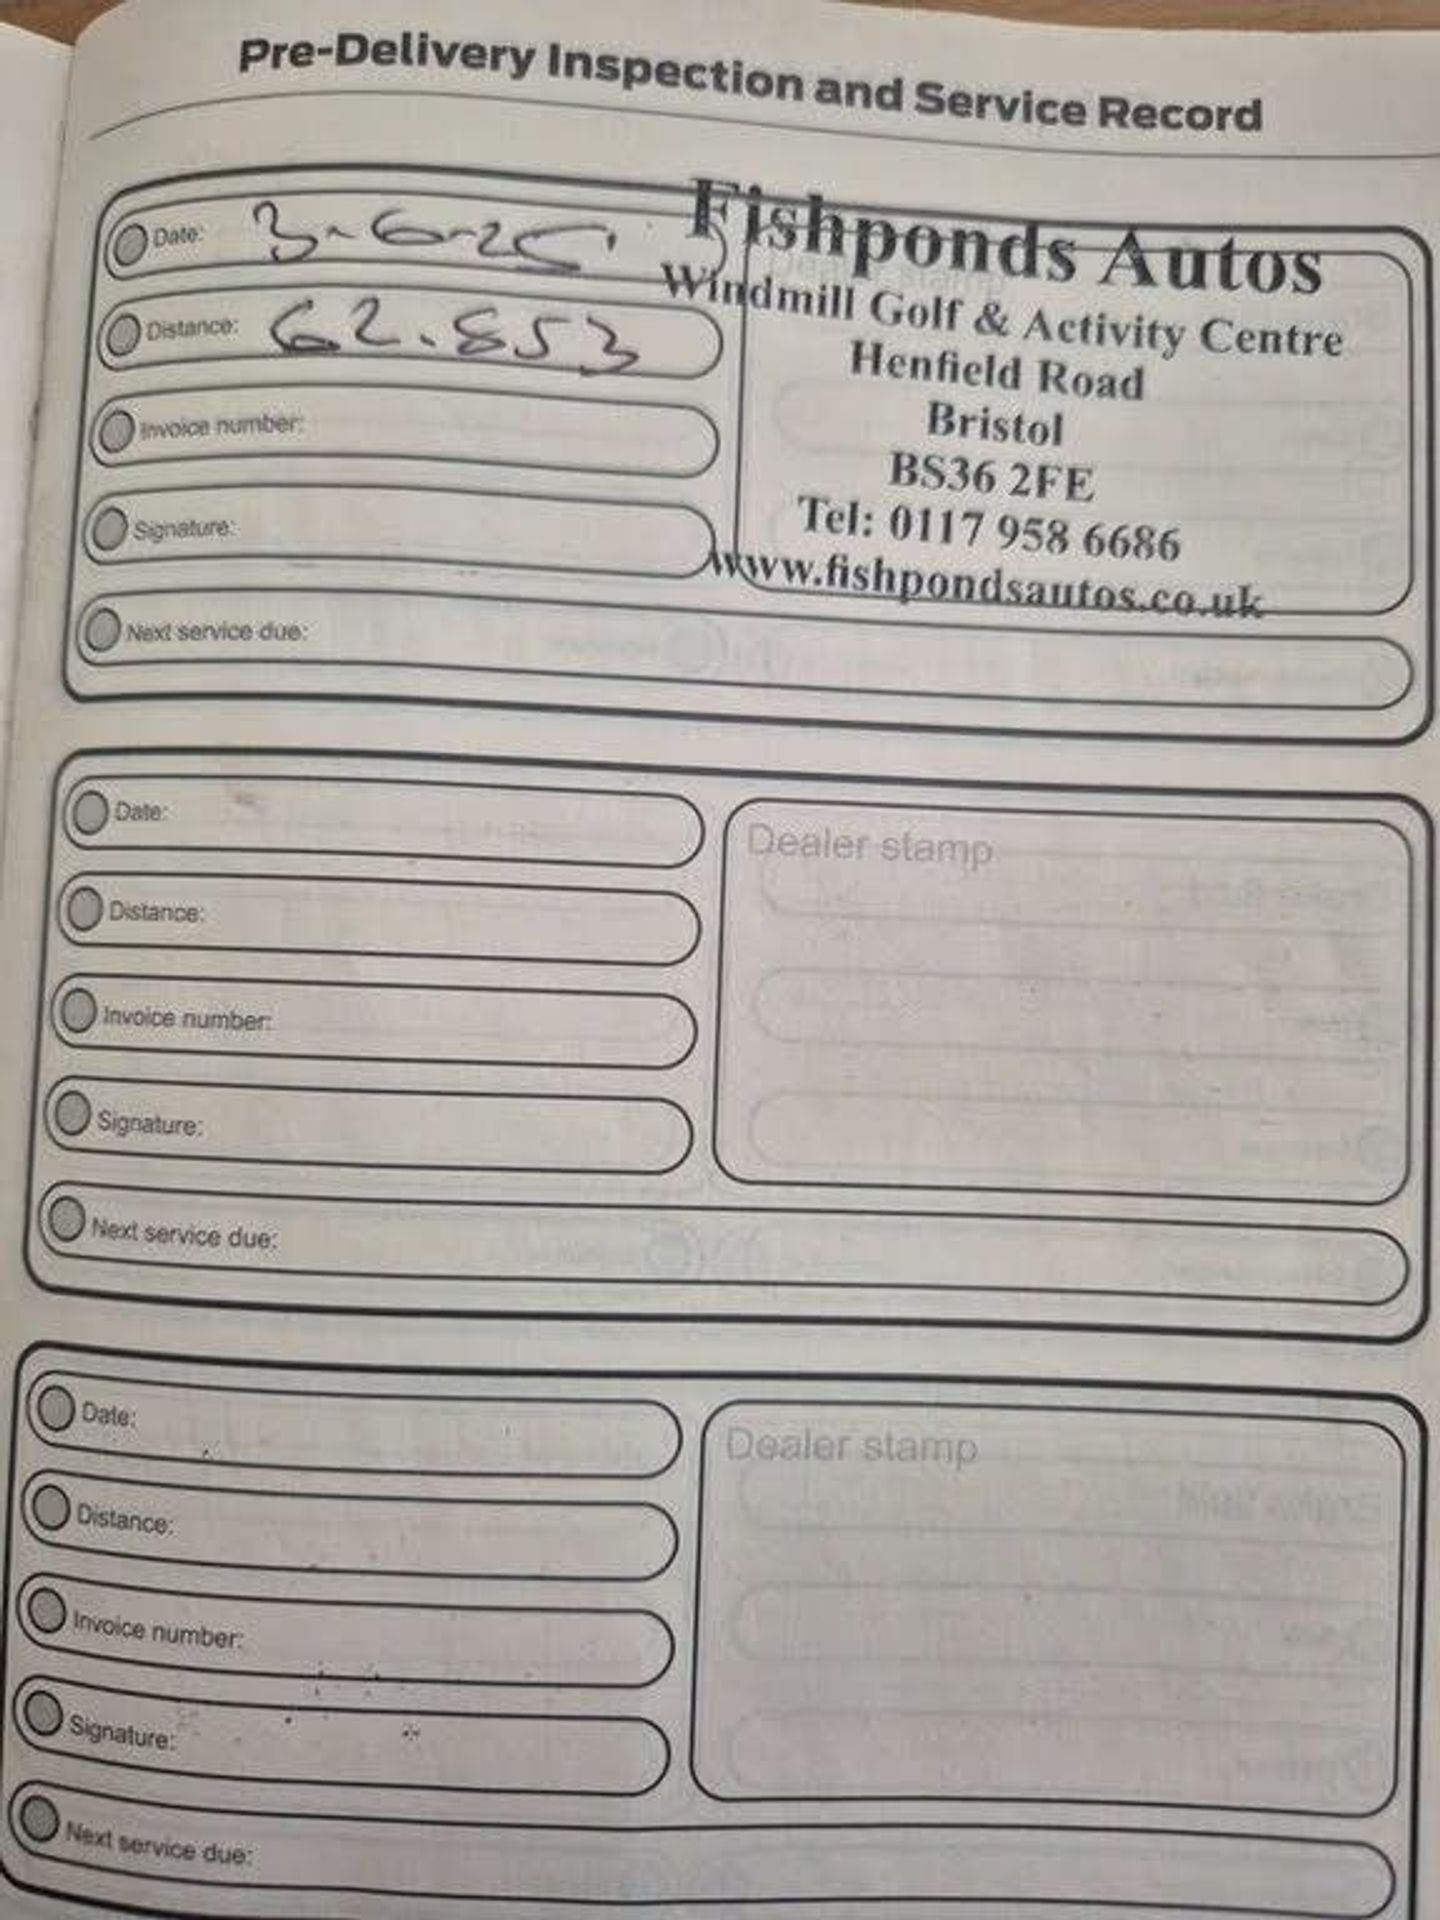 Pre-Delivery Inspection and Service Record
Date: 3-6-25
Fishponds Autos
Windmill Golf & Activity Centre
Distance: 62.853
Henfield Road
Bristol
Invoice number:
BS36 2FE
Tel: 0117 958 6686
Signature:
www.fishpondsautos.co.uk
Next service due:
Date:
Dealer stamp
Distance:
Invoice number:
Signature:
Next service due:
Date:
Dealer stamp
Distance:
Invoice number:
Signature:
Next service due: